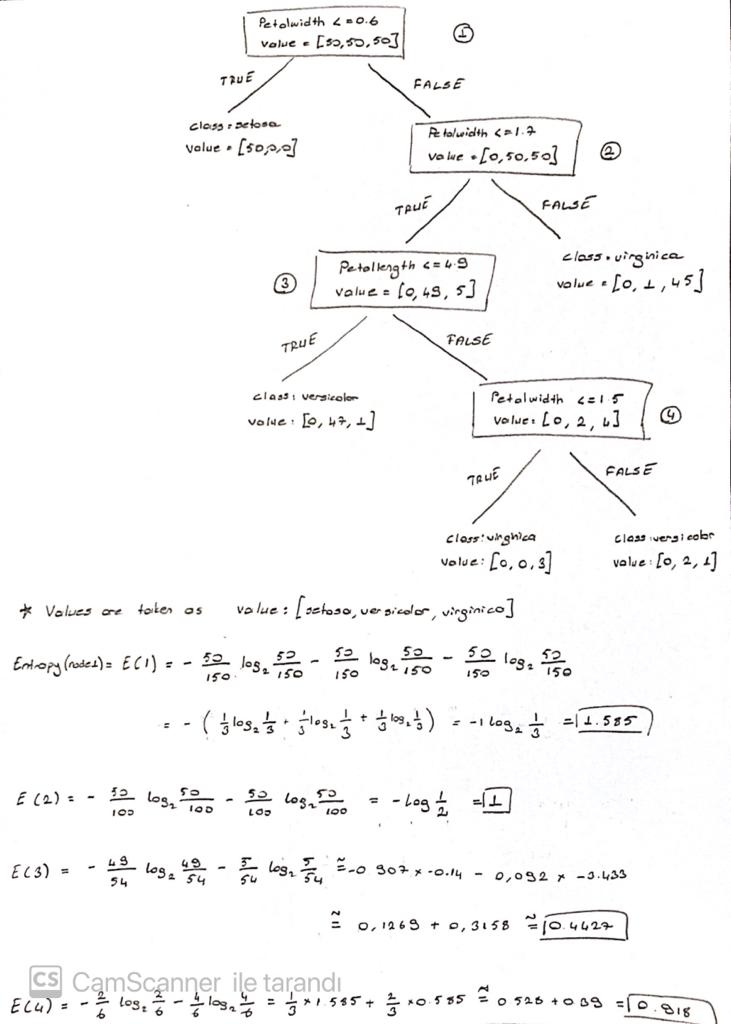 Petalwidth <=0.6
value = [50,50,50]
①
TRUE
FALSE
class = setosa
value = [50,0,0]
Petalwidth <=1.7
value = [0,50,50]
②
TRUE
FALSE
class = virginica
value = [0, 1, 45]
③
Petallength <= 4.9
value = [0, 49, 5]
TRUE
FALSE
class: versicolor
value: [0, 47, 1]
Petalwidth <=1.5
value: [0, 2, 4]
④
TRUE
FALSE
class: virginica
value: [0, 0, 3]
class: versicolor
value: [0, 2, 1]
* Values are taken as value: [setosa, versicolor, virginica]
Entropy (node1) = E(1) = - 50/150 log₂ 50/150 - 50/150 log₂ 50/150 - 50/150 log₂ 50/150
= - ( 1/3 log₂ 1/3 + 1/3 log₂ 1/3 + 1/3 log₂ 1/3 ) = -1 log₂ 1/3 = 1.585
E(2) = - 50/100 log₂ 50/100 - 50/100 log₂ 50/100 = - log 1/2 = 1
E(3) = - 49/54 log₂ 49/54 - 5/54 log₂ 5/54 ≅ -0.907 x -0.14 - 0,092 x -3.433
≅ 0,1269 + 0,3158 ≅ 0.4427
CS CamScanner ile tarandı
E(4) = - 2/6 log₂ 2/6 - 4/6 log₂ 4/6 = 1/3 x 1.585 + 2/3 x 0.585 ≅ 0.528 + 0.39 = 0.918